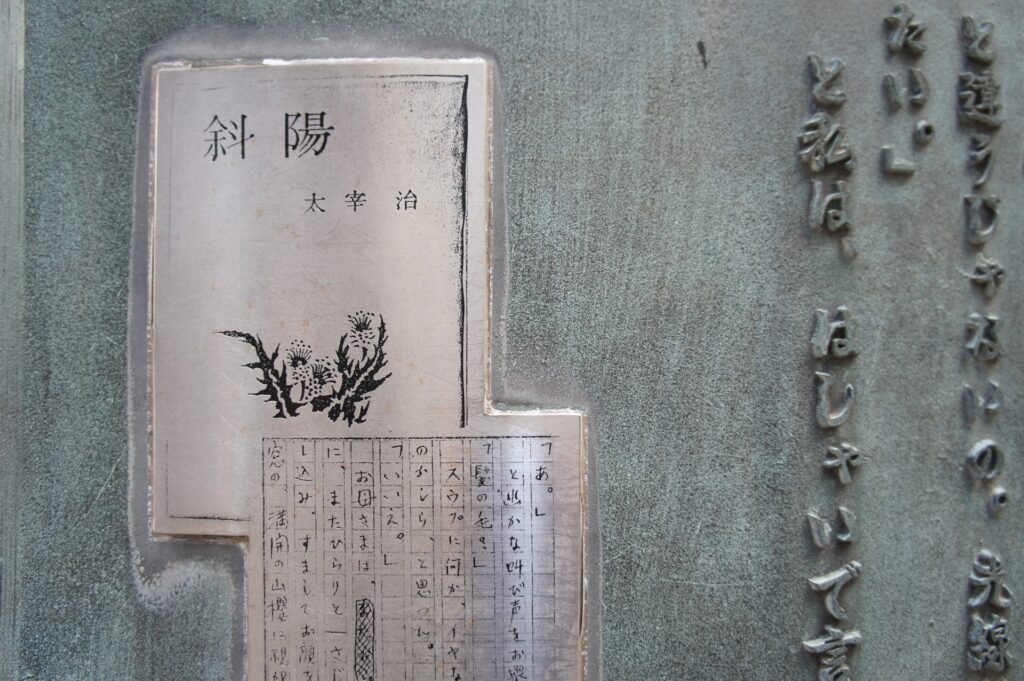 と違うじゃないの。光線
たい。」
と私は、はしゃいで言
斜陽
太宰治
「あ。」
と幽かな叫び声をお
「髪の毛?」
スウプに何か、イヤな
のかしら、と思つた。
「いいえ。」
お母さまは、
に、またひらりと一さじ
し込み、すましてお顔を
窓の、満開の山櫻に視